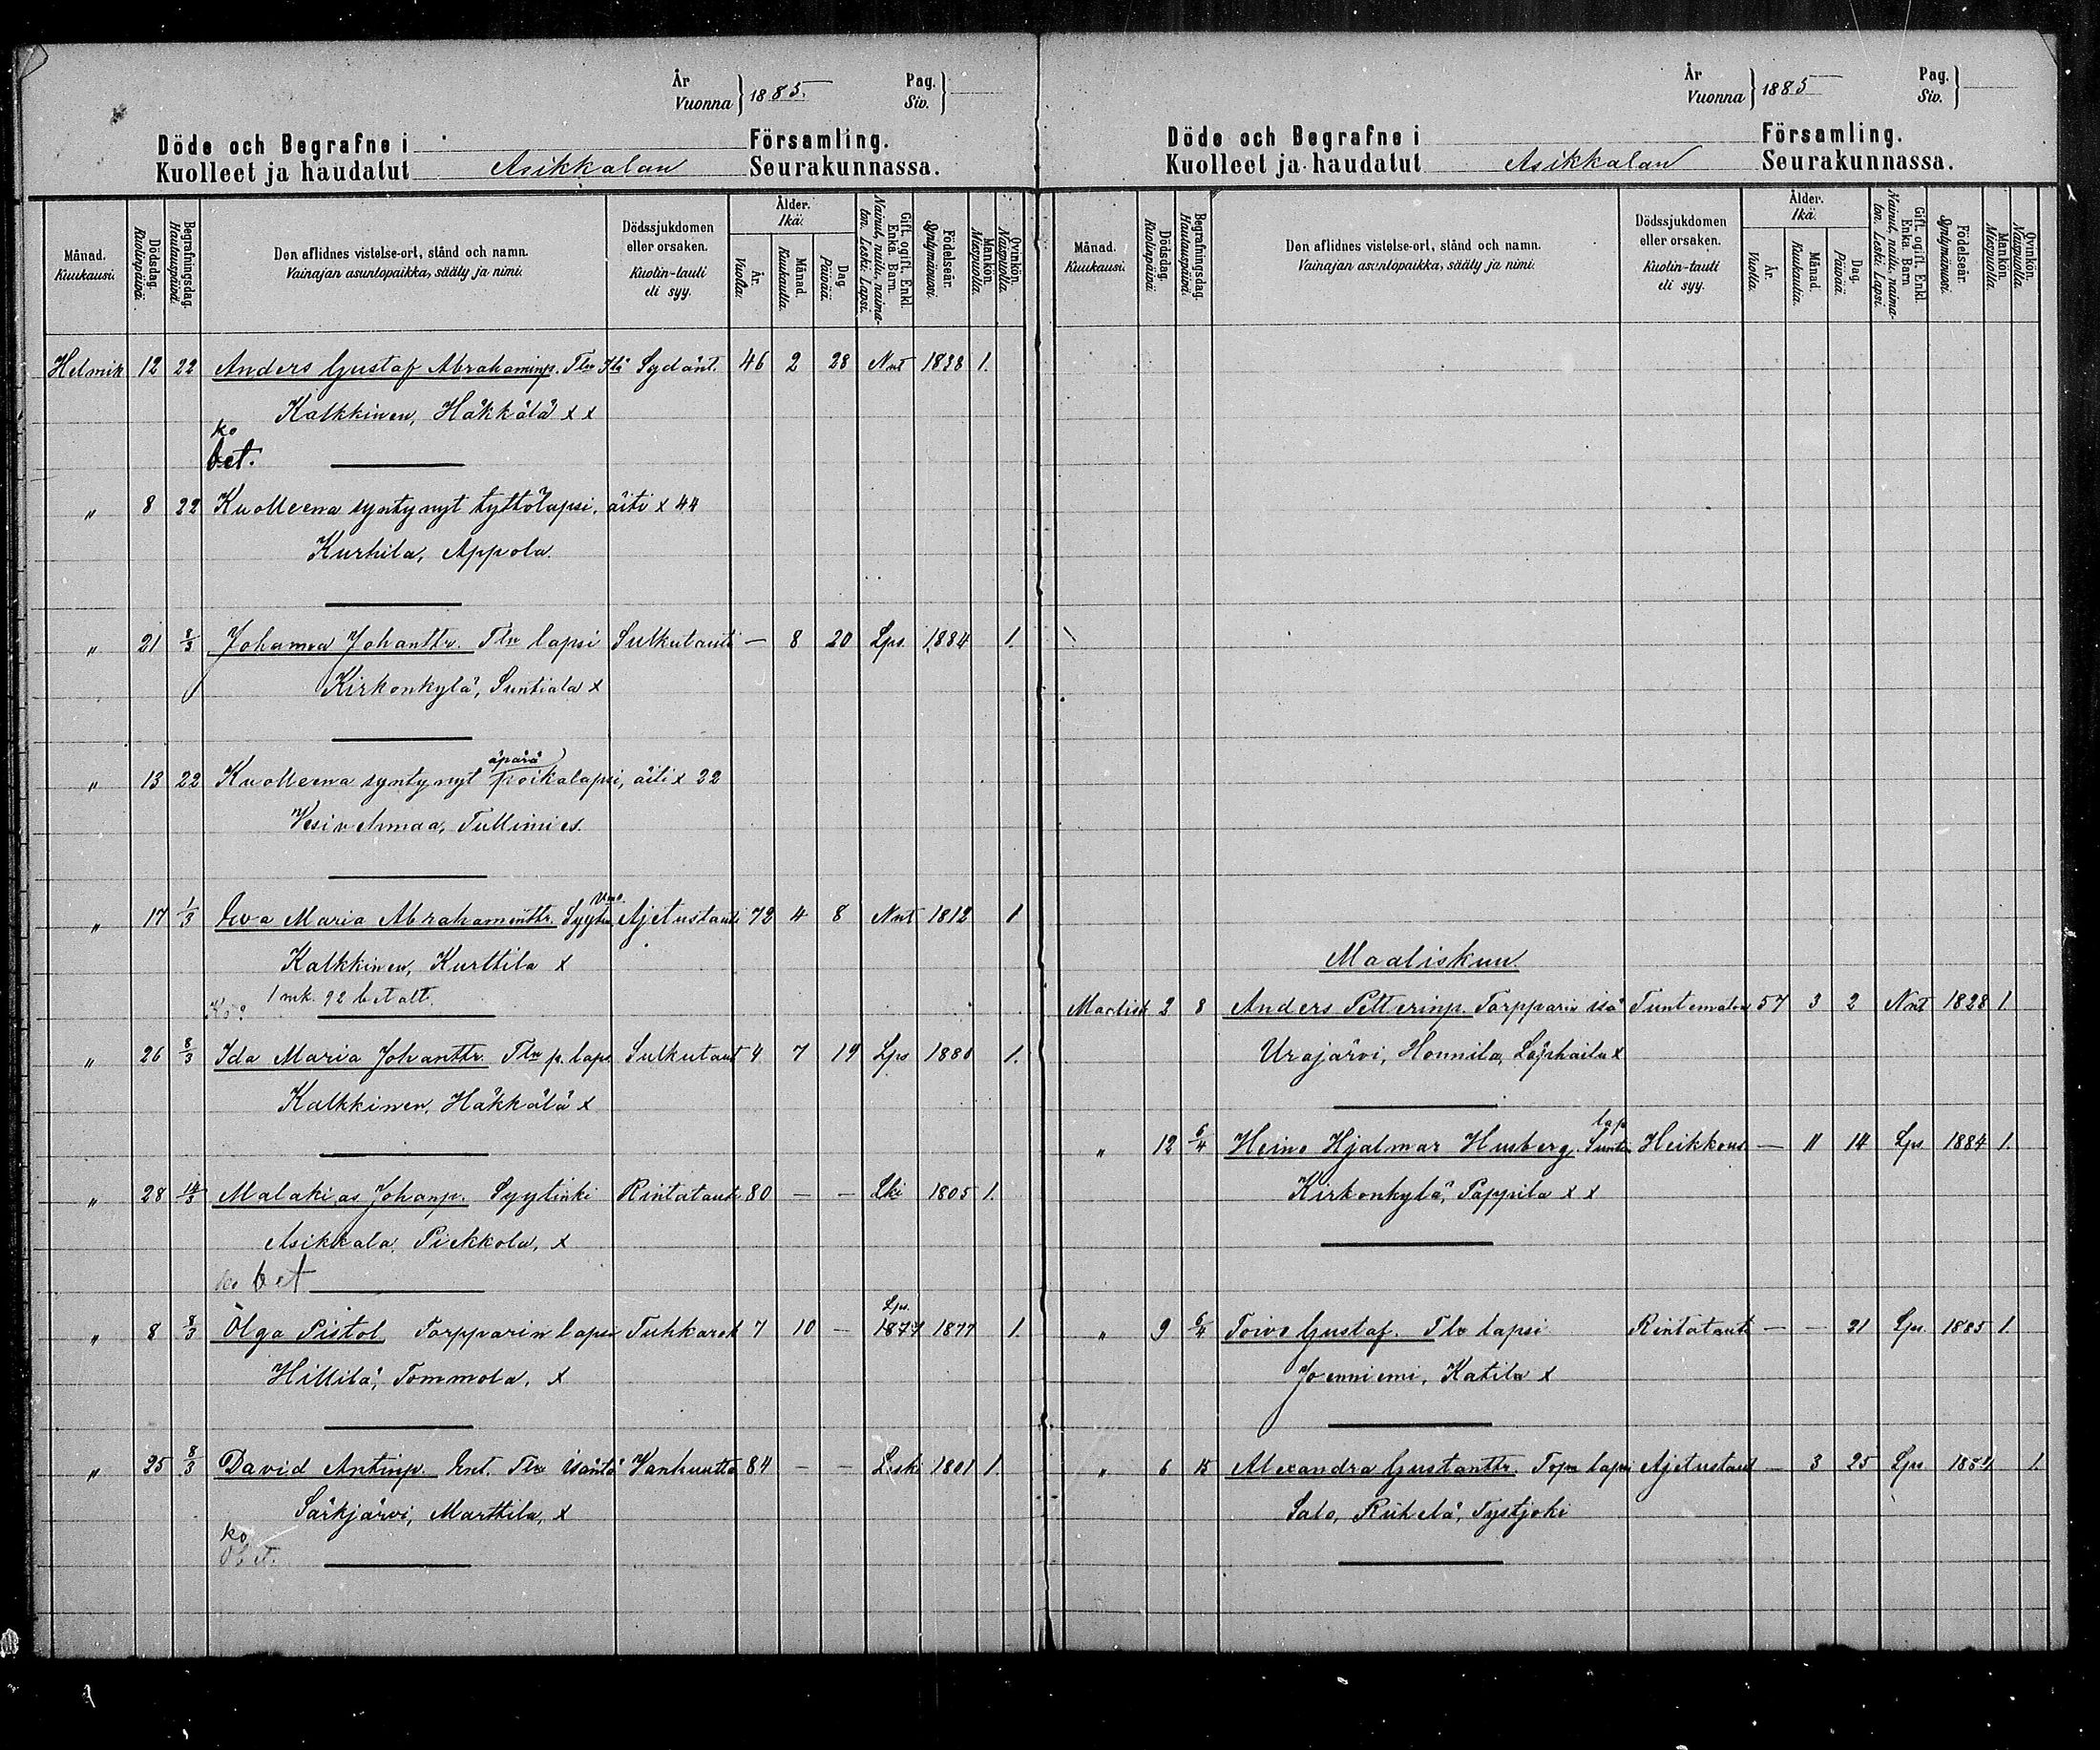 År
Vuonna } 1885.
Pag.
Siv. }
Döde och Begrafne i Församling.
Kuolleet ja haudatut Asikkalan Seurakunnassa.
Månad. Kuukausi.
Dödsdag. Kuolinpäivä.
Begrafningsdag. Hautauspäivä.
Den aflidnes vistelse-ort, stånd och namn.
Vainajan asuntopaikka, sääty ja nimi.
Dödssjukdomen eller orsaken.
Kuolin-tauti eli syy.
Ålder. Ikä.
År. Vuotta.
Månad. Kuukautta.
Dag. Päivää.
Gift, ogift, Enkl. Enka. Barn.
Nainut, naitu, naima-ton. Leski. Lapsi.
Födelseår. Syntymävuosi.
Mankön. Miespuolia.
Qvinkön. Naispuolia.
Helmik 12 22 Anders Gustaf Abrahaminp. Tln Itä Sydänt. 46 2 28 Nnt 1838 1.
Kalkkinen, Häkkälä x x
ko
bet.
" 8 22 Kuolleena syntynyt tyttölapsi, äiti x 44
Kurhila, Appola.
" 21 8/3 Johanna Johanttr. Tln lapsi Sulkutauti — 8 20 Lps. 1884 1.
Kirkonkylä, Suntiala x
äpärä
" 13 22 Kuolleena syntynyt poikalapsi, äiti x 22
Vesivehmaa, Tullimies.
" 17 1/3 Eva Maria Abrahamittr. Syyt. Ajetustauti 72 4 8 Nnt 1812 1
Kalkkinen, Kurttila x
1 mk. 92 betalt.
" 26 8/3 Ida Maria Johanttr. Tln p. laps. Sulkutaut 4 7 19 Lps 1880 1.
Kalkkinen, Häkkälä x
" 28 14/3 Malakias Johanp. Syytinki Rintataut. 80 — — Lki 1805 1.
Asikkala, Piekkola, x
ko bet
Lps.
" 8 8/3 Olga Pistol Torpparin lapsi Tuhkarok 7 10 — 1877 1877 1.
Hillilä, Tommola, x
" 25 8/3 David Antinp. Ent. Tln isäntä Vanhuutta 84 — — Leski 1801 1.
Särkjärvi, Marttila, x
ko
bet.
År
Vuonna } 1885
Pag.
Siv. }
Döde och Begrafne i Församling.
Kuolleet ja haudatut Asikkalan Seurakunnassa.
Månad. Kuukausi.
Dödsdag. Kuolinpäivä.
Begrafningsdag. Hautauspäivä.
Den aflidnes vistelse-ort, stånd och namn.
Vainajan asuntopaikka, sääty ja nimi.
Dödssjukdomen eller orsaken.
Kuolin-tauti eli syy.
Ålder. Ikä.
År. Vuotta.
Månad. Kuukautta.
Dag. Päivää.
Gift, ogift, Enkl. Enka. Barn
Nainut, naitu, naima-ton. Leski. Lapsi.
Födelseår. Syntymävuosi.
Mankön. Miespuolia.
Qvinkön. Naispuolia.
Maaliskuu.
Maalisk 2 8 Anders Petterinp. Torpparin isä Tuntematon 57 3 2 Nnt 1828 1.
Urajärvi, Honnila, x
lap
" 12 6/4 Heino Hjalmar Husberg. Suntin Heikkous — 11 14 Lps 1884 1.
Kirkonkylä, Pappila x x
" 9 6/4 Toivo Gustaf. Tln lapsi Rintatauti — — 21 Lps. 1885 1.
Joenniemi, Katila x
" 6 15 Alexandra Gustanttr. Torp. lapsi Ajetustaut — 3 25 Lps 1884 1.
Salo, Riihelä, Tystjoki